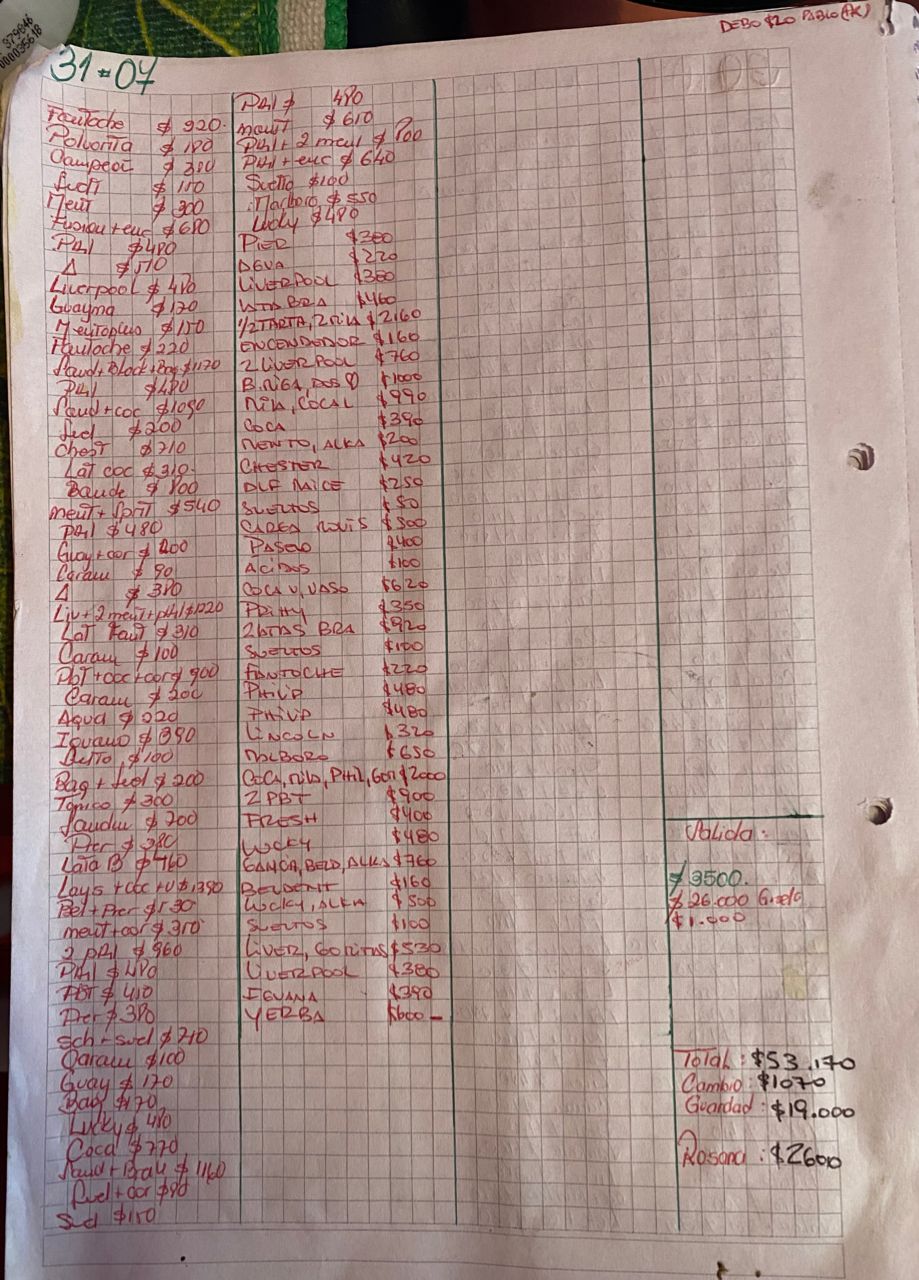 379646
000035618
DEBO $20 PABLO (AK)
31-07
Fantoche $ 920.
Polvorita $ 180
$ 380
$ 150
Ment $ 300
Fusion + enc $ 680
PHL $480
Δ $570
Liverpool $ 480
Guayma $ 170
Mentoplus $ 150
Fantoche $ 220
Sand + Block + Bag $1170
PHL $480
Sand + coc $1090
Suel $200
Chest $710
Lat coc $310
$ 800
ment + Sprit $540
PHL $480
Guay + cor $ 200
Caram $ 90
Δ $ 380
Liv + 2 ment + PHL $1220
Lat Fant $ 310
Caram $ 100
PBT + coc + cor $ 900
Caram $ 200
Agua $ 220
Iguana $ 390
$100
Bag + Suel $ 200
Topico $ 300
$ 200
Pier $ 380
Lata B $ 460
Lays + coc + U $ 1390
Bel + Pier $ 530
ment + cor $ 350
2 PHL $ 960
PHL $ 480
PBT $ 450
Pier $ 380
Sch + Suel $ 740
Caram $100
Guay $ 170
Bag $170
Lucky $ 480
Coca $ 770
Sand + Brah $ 1160
Suel + cor $90
Suel $150
PHL $ 480
ment $ 610
PHL + 2 ment $ 800
PHL + enc $ 640
Suelto $100
Marlboro $ 550
Lucky $ 480
PIER $380
DEUA $220
LIVERPOOL $380
LATA BRA $460
1/2 TARTA, 2 MILA $2160
ENCENDEDOR $160
2 LIVERPOOL $760
B. NIGA, DOS $1000
MILA, COCAL $990
COCA $390
MENTO, ALKA $200
CHESTER $420
DLF MAICE $250
SUELTOS $50
CARGA MOVIS $500
PASEO $400
ACIDOS $100
COCA U, VASO $620
PRITTY $350
2 LATAS BRA $920
SUELTOS $100
FANTOCHE $220
PHILIP $480
PHILIP $480
LINCOLN $320
MOLBORO $650
COCA, MILA, PHIL, GOM $2000
2 PBT $900
FRESH $400
LUCKY $480
GANCIA, BELD, ALKA $760
BELDENT $160
LUCKY, ALKA $500
SUELTOS $100
LIVER, GOMITAS $530
LIVERPOOL $380
IGUANA $390
YERBA $600
Salida:
$ 3500.
$ 26.000 Gisela
$ 1.000
Total: $53.170
Cambio: $1070
Guardad: $19.000
Rosana: $2600